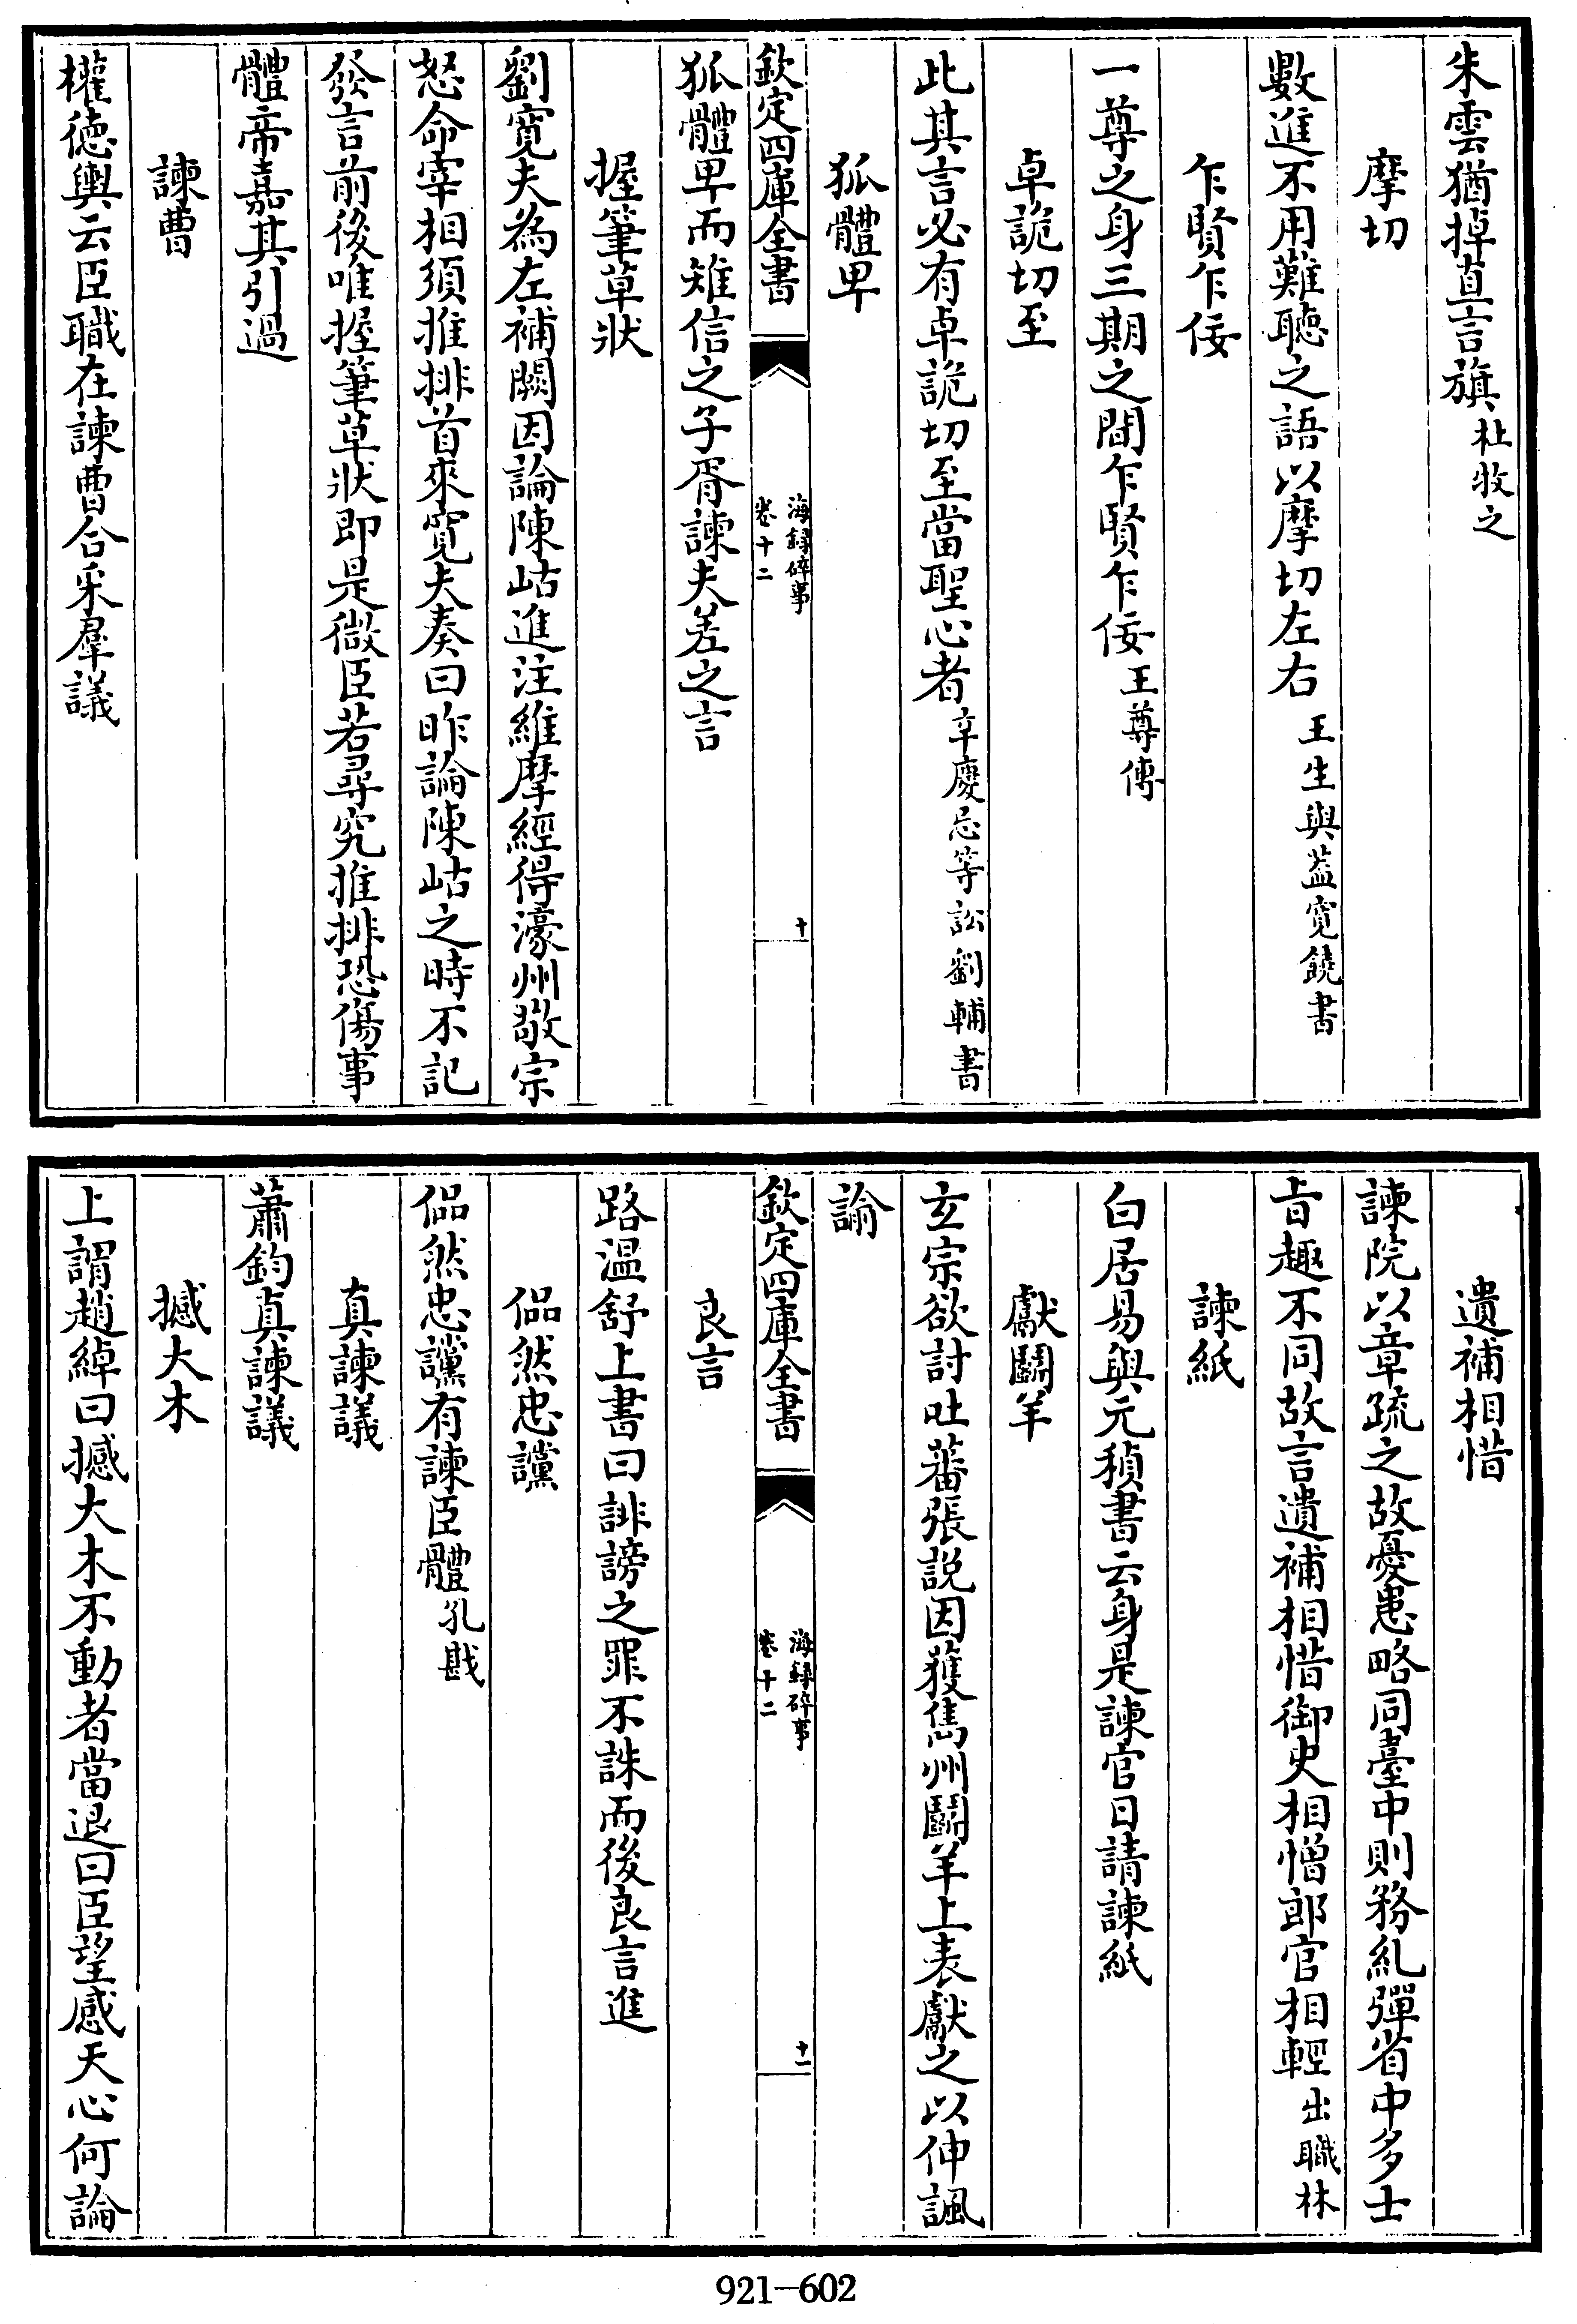 朱雲猶掉直言旗杜牧之
摩切
數進不用難聽之語以摩切左右王生與葢寛饒書
乍賢乍佞
一尊之身三期之間乍賢乍佞王尊傳
卓詭切至
此其言必有卓詭切至當聖心者辛慶忌等訟劉輔書
狐體卑
欽定四庫全書
海録碎事
卷十二
十
狐體卑而雉信之子胥諫夫差之言
握筆草狀
劉寛夫為左補闕因論陳岵進注維摩經得濠州敬宗
怒命宰相須推排首來寛夫奏曰昨論陳岵之時不記
發言前後唯握筆草狀即是微臣若尋究推排恐傷事
體帝嘉其引過
諫曹
權徳輿云臣職在諫曹合采羣議
遺補相惜
諫院以章疏之故憂患略同臺中則務糺彈省中多士
㫖趣不同故言遺補相惜御史相憎郎官相輕出職林
諫紙
白居易與元稹書云身是諫官日請諫紙
獻鬭羊
玄宗欲討吐蕃張説因獲雋州鬭羊上表獻之以伸諷
諭
欽定四庫全書
海録碎事
卷十二
十一
良言
路温舒上書曰誹謗之罪不誅而後良言進
偘然忠讜
偘然忠讜有諫臣體孔戡
真諫議
蕭鈞真諫議
撼大木
上謂趙綽曰撼大木不動者當退曰臣望感天心何論
921-602